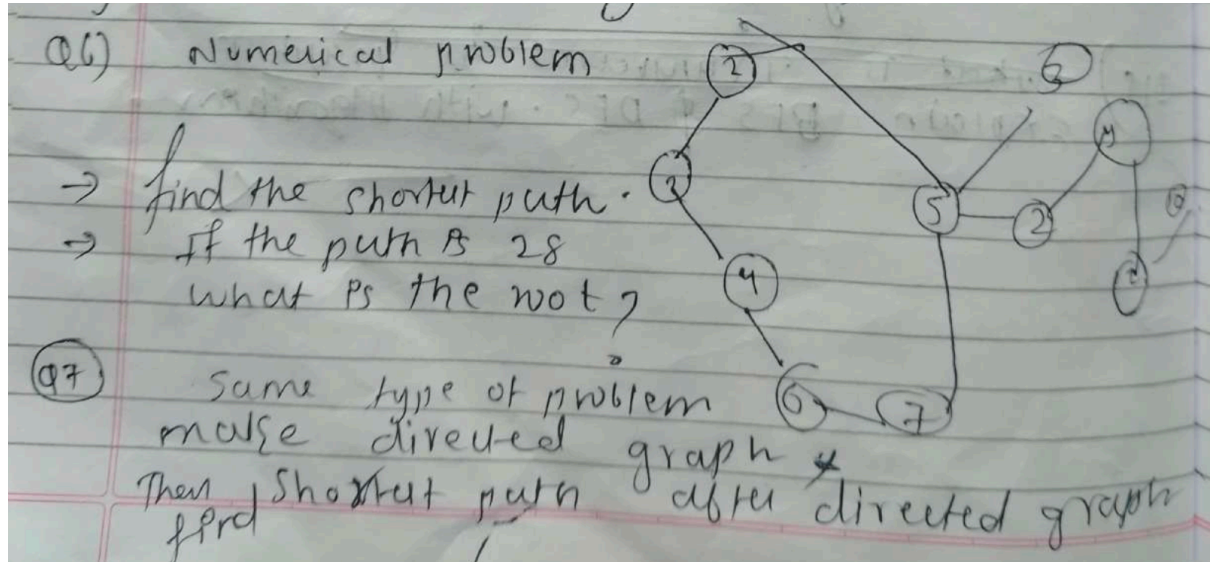 Q6) Numerical problem
→ find the shortest path.
→ If the path is 28
what is the root ?
Q7 Same type of problem
make directed graph &
Then shortest path after directed graph
find
2
3
4
6
7
5
2